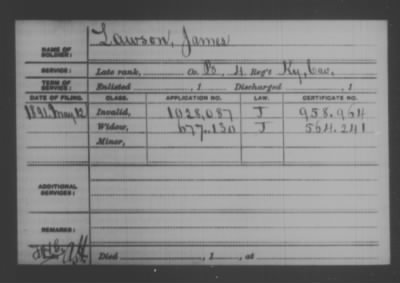 Lawson, James
NAME OF SOLDIER:
SERVICE: Late rank, Co. B, 4 Reg't Ky, Cav.
TERM OF SERVICE: Enlisted , 1 Discharged , 1
DATE OF FILING. CLASS. APPLICATION NO. LAW. CERTIFICATE NO.
1891, May 12 Invalid, 1028,087 J 958.964
Widow, 677.130 J 564.241
Minor,
ADDITIONAL SERVICES:
REMARKS:
Died , 1 , at